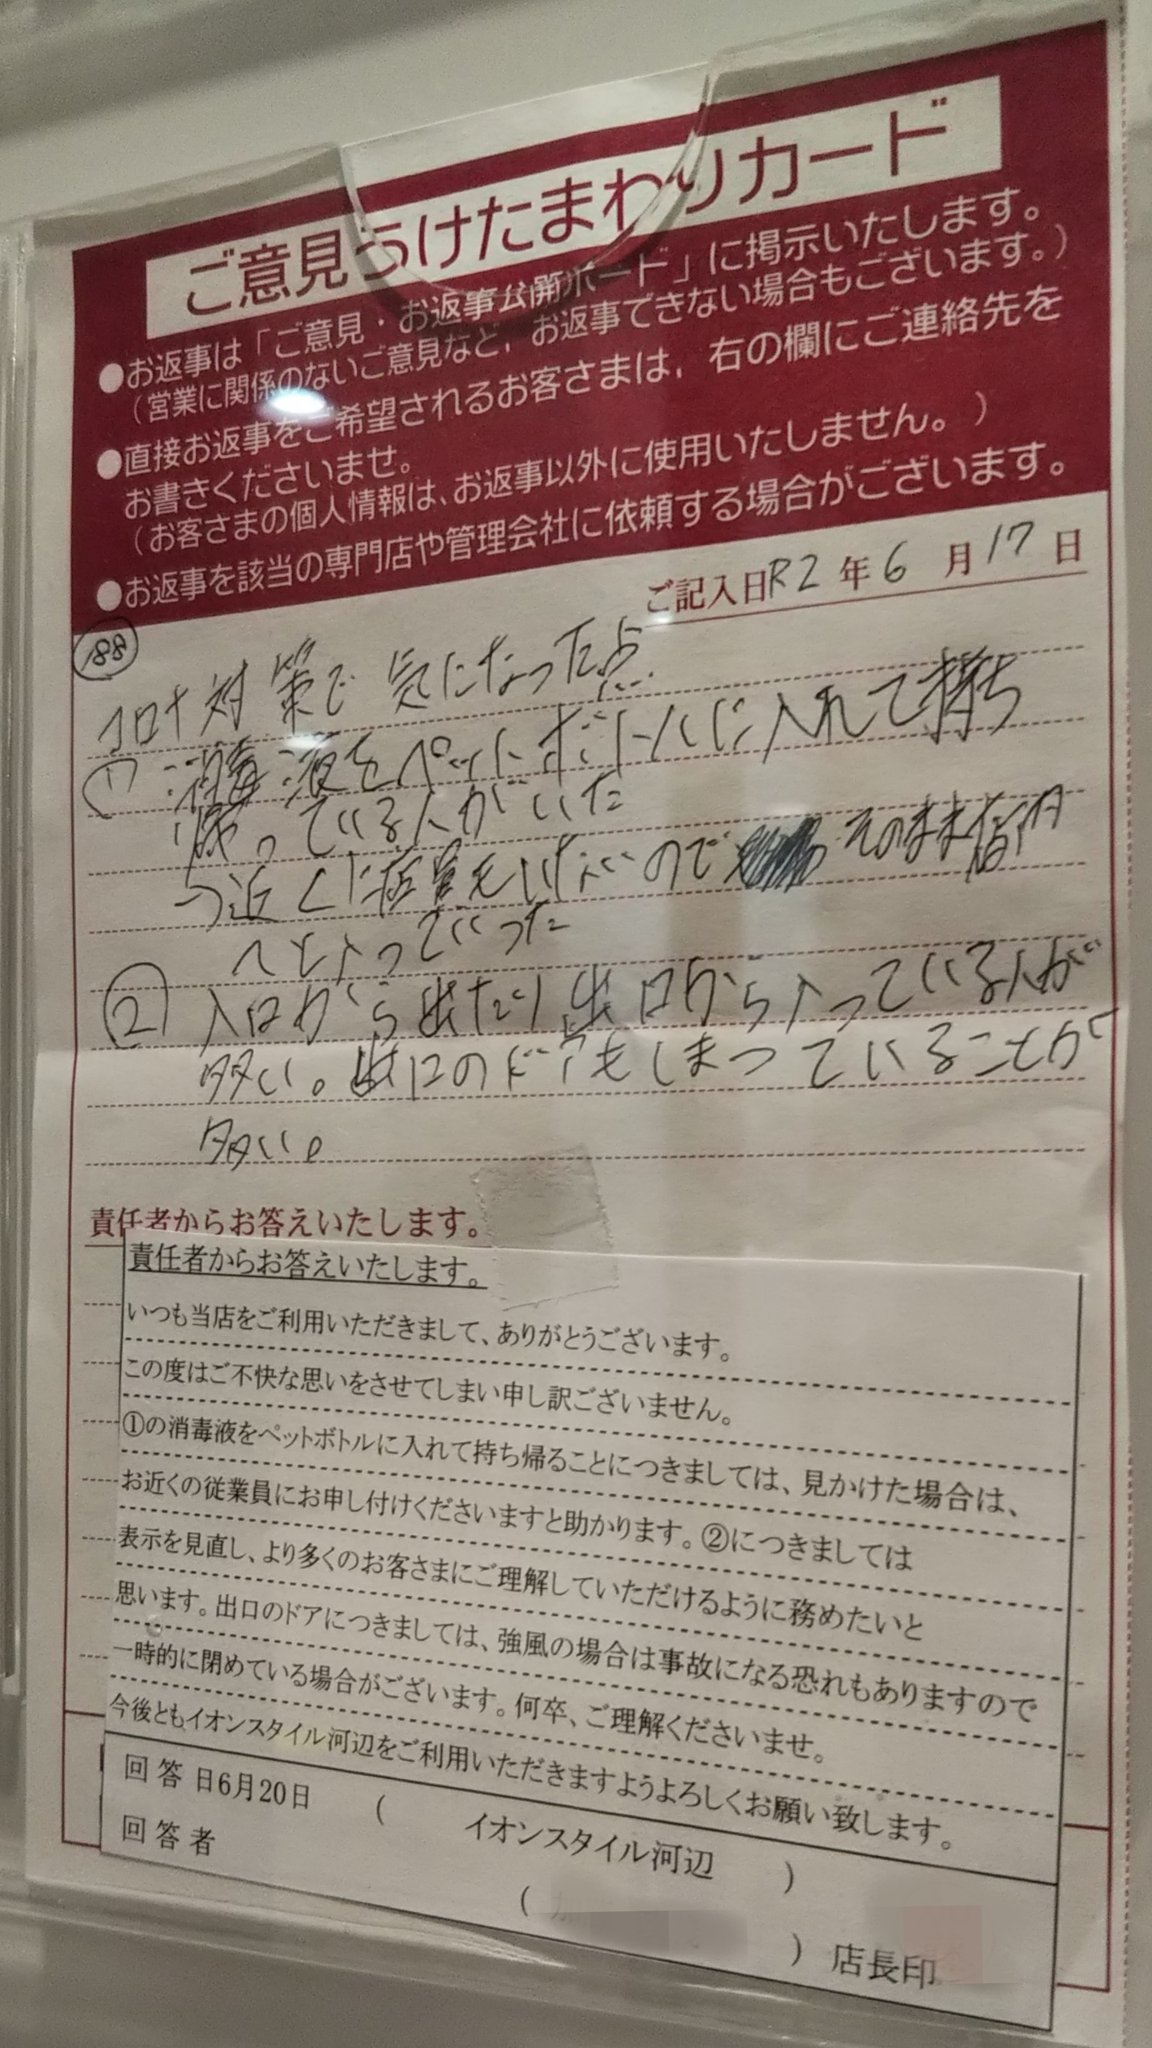 ご意見うけたまわりカード
●お返事は「ご意見・お返事公開ボード」に掲示いたします。
（営業に関係のないご意見など、お返事できない場合もございます。）
●直接お返事をご希望されるお客さまは、右の欄にご連絡先を
お書きくださいませ。
（お客さまの個人情報は、お返事以外に使用いたしません。）
●お返事を該当の専門店や管理会社に依頼する場合がございます。
ご記入日R2年6月17日
188
コロナ対策で気になった点
① 消毒液をペットボトルに入れて持ち
帰っている人がいた
→近くに店員もいないので そのまま店内
へと入っていった
② 入口から出たり出口から入っている人が
多い。出口のドアもしまっていることが
多い。
責任者からお答えいたします。
責任者からお答えいたします。
いつも当店をご利用いただきまして、ありがとうございます。
この度はご不快な思いをさせてしまい申し訳ございません。
①の消毒液をペットボトルに入れて持ち帰ることにつきましては、見かけた場合は、
お近くの従業員にお申し付けくださいますと助かります。②につきましては
表示を見直し、より多くのお客さまにご理解していただけるように務めたいと
思います。出口のドアにつきましては、強風の場合は事故になる恐れもありますので
一時的に閉めている場合がございます。何卒、ご理解くださいませ。
今後ともイオンスタイル河辺をご利用いただきますようよろしくお願い致します。
回答日6月20日 （ イオンスタイル河辺 ）
回答者 （ ） 店長印